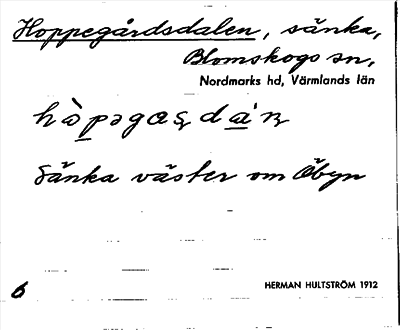 Hoppegårdsdalen, sänka,
Blomskogs sn,
Nordmarks hd, Värmlands län
Sänka väster om Åbyn
6
HERMAN HULTSTRÖM 1912